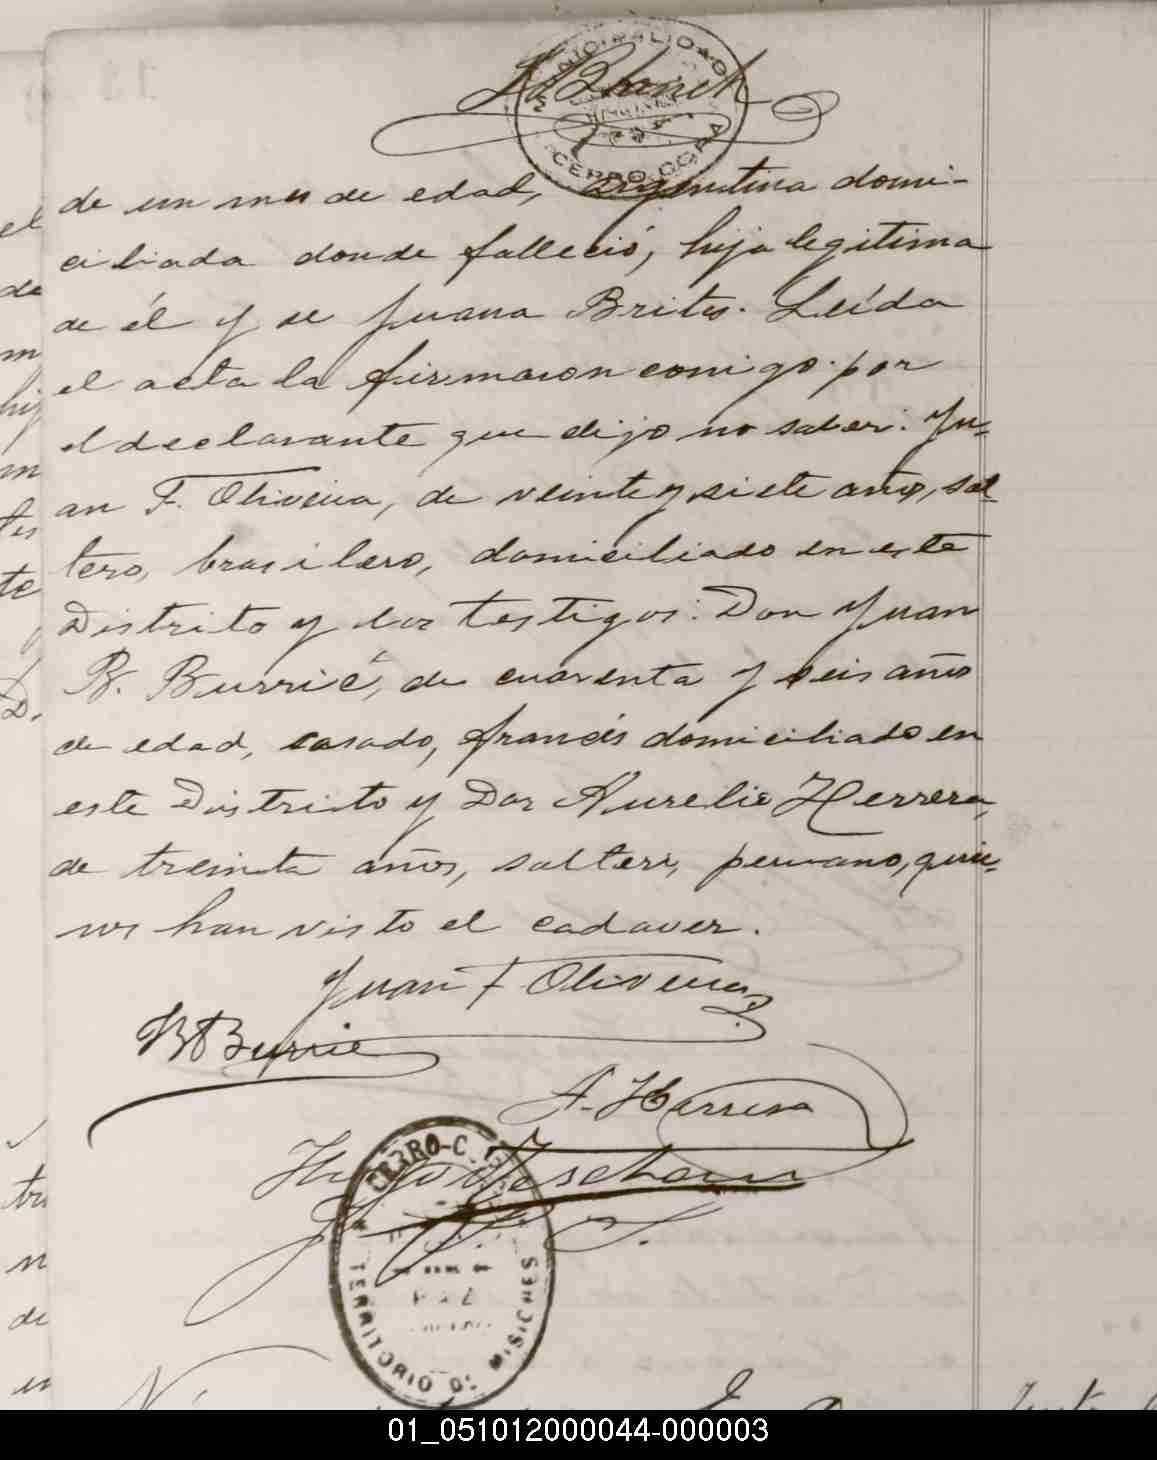 MUNICIPALIDAD
CERRO CORA
de un mes de edad, argentina domi-
ciliada donde falleció, hija legitima
de él y de Juana Brites. Leída
el acta la firmaron conmigo por
el declarante que dijo no saber: Ju-
an F. Oliveira, de veinte y siete años, sol-
tero, brasilero, domiciliado en este
Distrito y los testigos: Don Juan
B. Burrié, de cuarenta y seis años
de edad, casado, francés domiciliado en
este Distrito y Don Aurelio Herrera,
de treinta años, soltero, peruano, quie-
nes han visto el cadaver.
Juan F Oliveira
B Burrie
A. Herrera
Hugo
CERRO-C
PAZ
TERRITORIO D. MISIONES
01_051012000044-000003